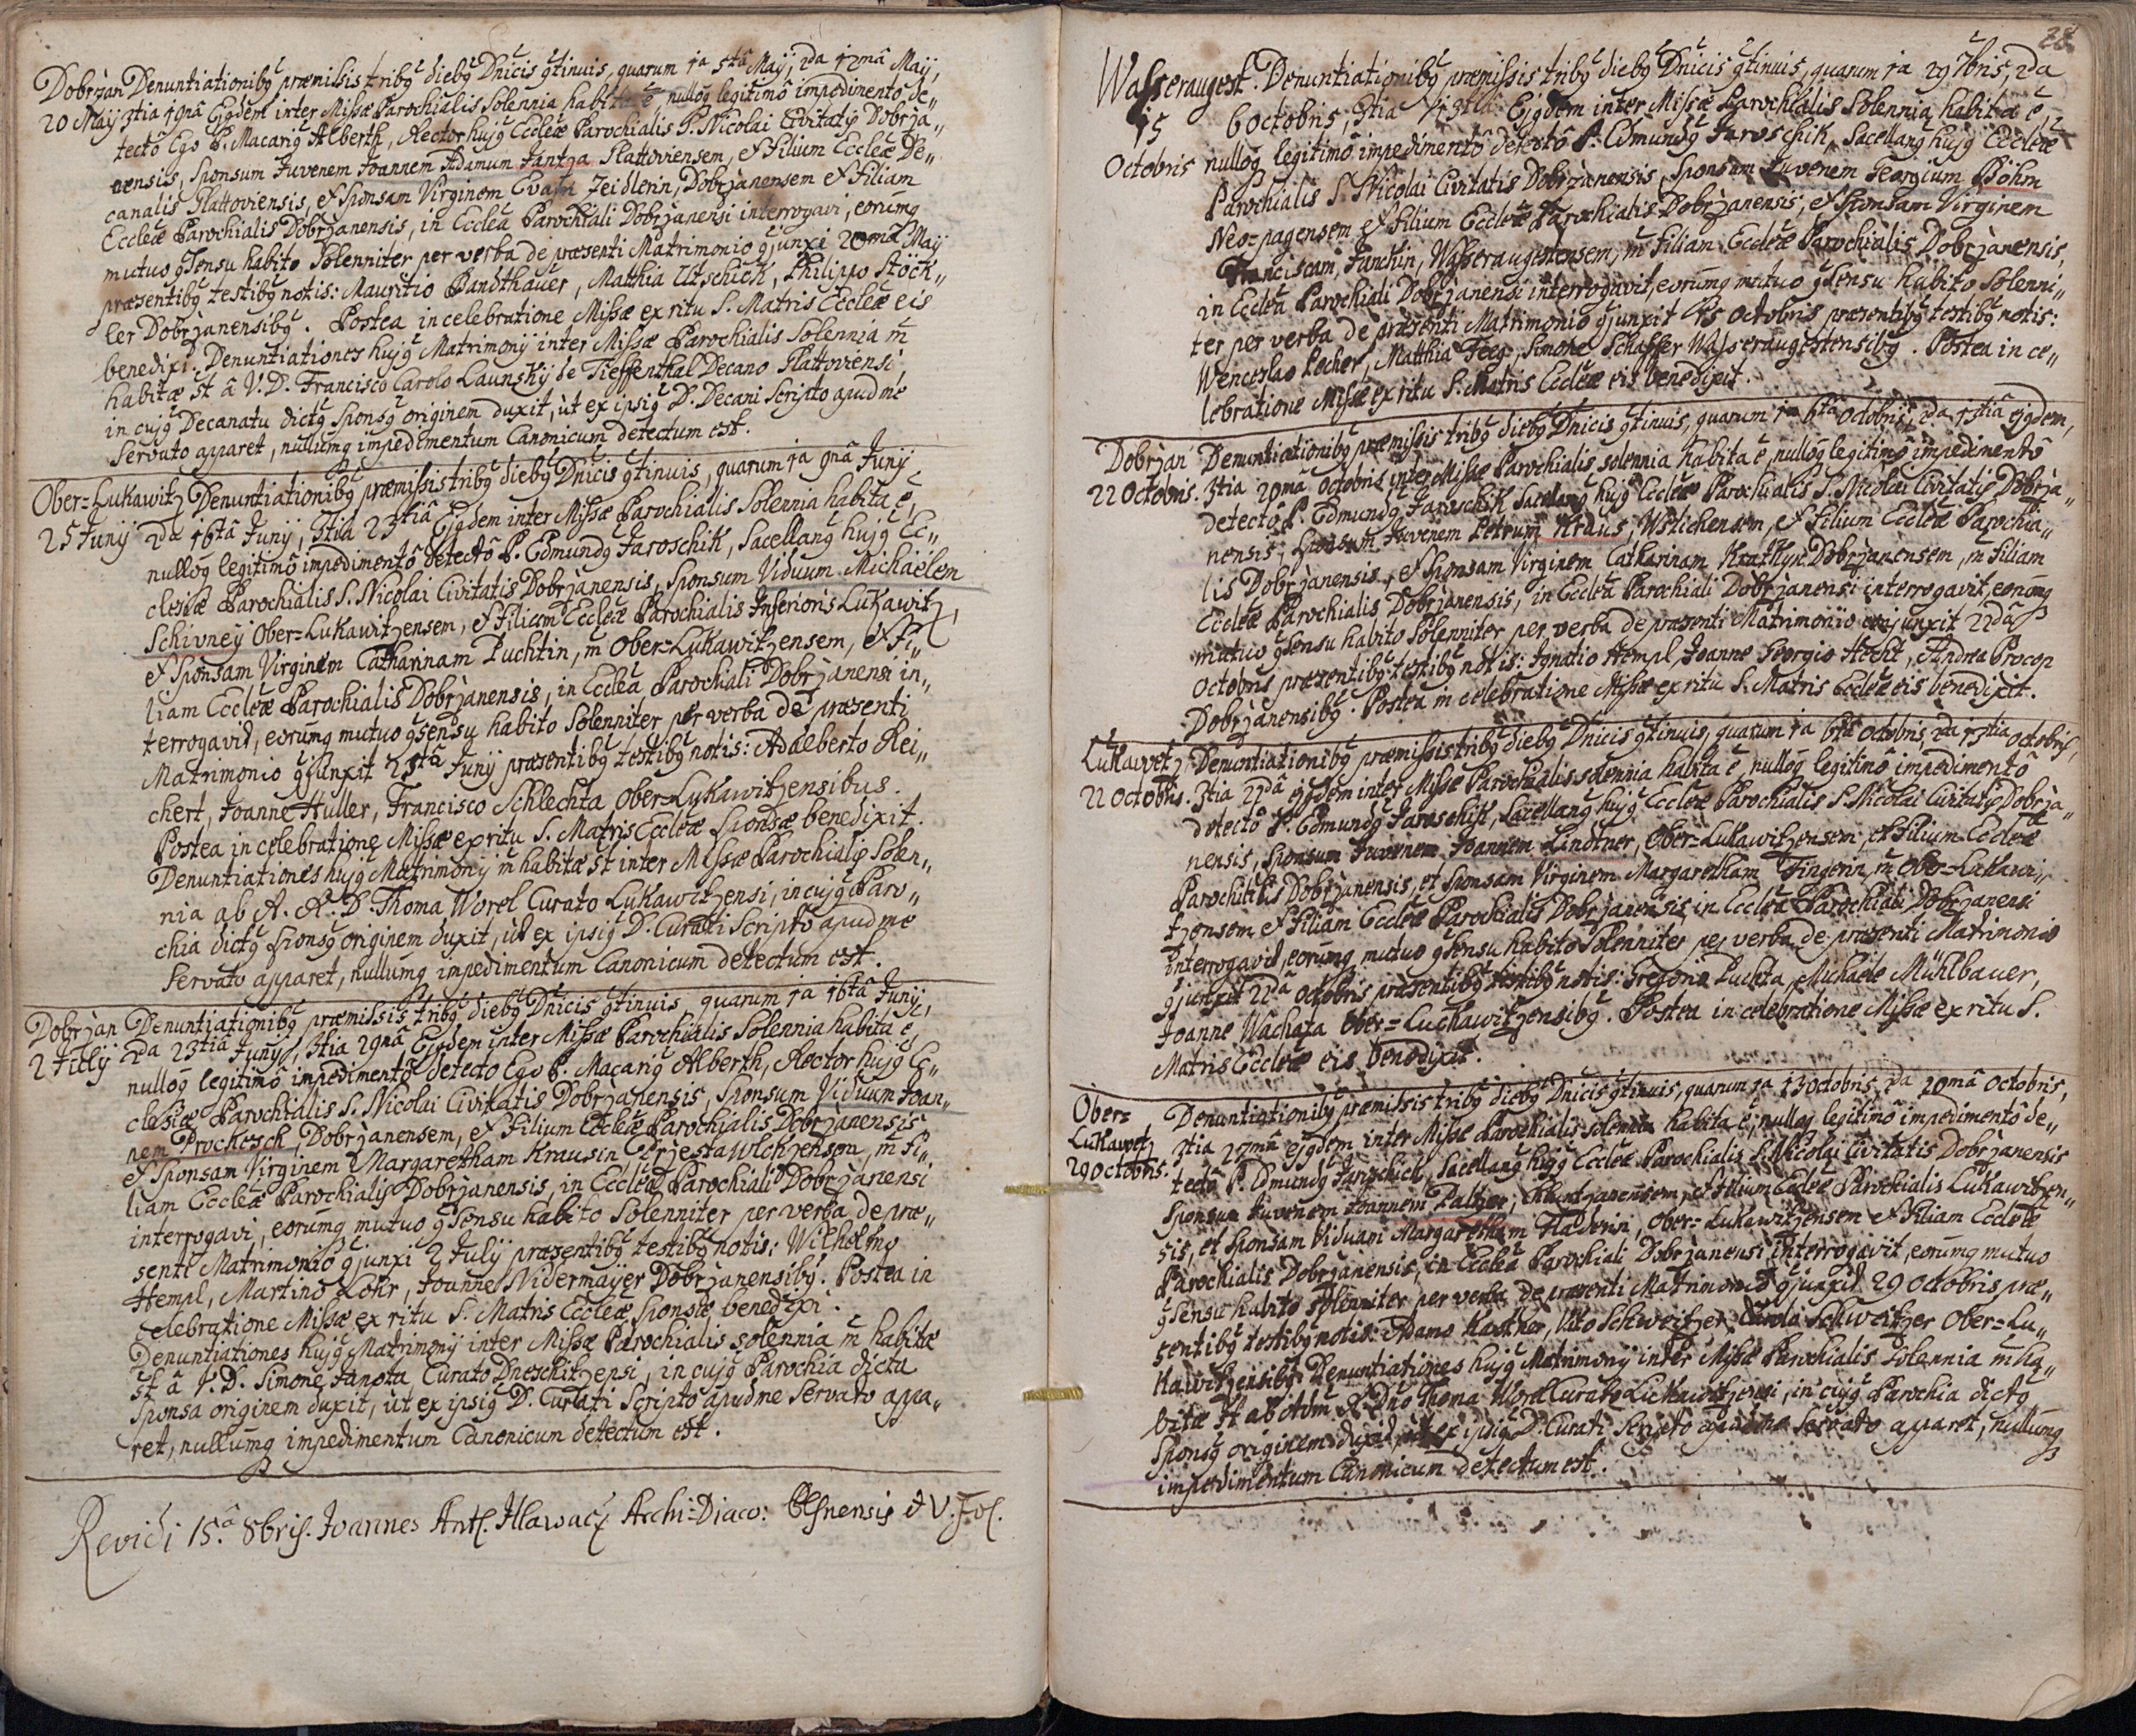 Dobrzan Denuntiationibꝰ præmissis tribꝰ diebꝰ Dnicis ꝯtinuis, quarum 1a 5tâ Maij, 2da 12mâ Maij,
20 Maij 3tia 19nâ Ejꝰdem inter Missæ Parochialis Solennia habita ē, nulloq legitimô impedimento de„
tectô Ego P. Macariꝰ Alberth, Rector hujꝰ Eccleæ Parochialis S. Nicolai Civitatis Dobrza„
nensis, Sponsum Juvenem Joannem Adamum Jantza Klattoviensem, et Filium Eccleæ De„
canalis Klattoviensis, et Sponsam Virginem Evam Zeidlerin, Dobrzanensem et Filiam
Eccleæ Parochialis Dobrzanensis, in Ecclea Parochiali Dobrzanensi interrogavi, eorumq
mutuo ꝯsensu habito Solenniter per verba de præsenti Matrimonio ꝯjunxi 20mâ Maij
præsentibꝰ testibꝰ notis: Mauritio Bandthauer, Matthia Utschick, Philippo Stöck„
ler Dobrzanensibꝰ. Postea in celebratione Missæ ex ritu S. Matris Eccleæ eis
benedixi. Denuntiationes hujꝰ Matrimonij inter Missæ Parochialis Solennia m̄
habitæ st̄ â V. D. Francisco Carolo Launskÿ de Tieffenthal Decano Klattoviensi,
in cujꝰ Decanatu dictꝰ Sponsꝰ originem duxit, ùt ex ipsiꝰ D. Decani Scripto apud me
Servato apparet, nullumq impedimentum Canonicum detectum est.
Ober=Lukawitz Denuntiationibꝰ præmissis tribꝰ diebꝰ Dnicis ꝯtinuis, quarum 1a 9nâ Junij
25 Junij 2da 16tâ Junij, 3tia 23tiâ Ejꝰdem inter Missæ Parochialis Solennia habita ē,
nulloq legitimô impedimentô detectô P. Edmundꝰ Jaroschik, Sacellanꝰ hujꝰ Ec„
clesiæ Parochialis S. Nicolai Civitatis Dobrzanensis, Sponsum Viduum Michaëlem
Schivneÿ Ober=Lukawitzensem, et Filium Eccleæ Parochialis Inferioris Lukawitz,
et Sponsam Virginem Catharinam Puchtin, m̄ Ober=Lukawitzensem, et Fi„
liam Eccleæ Parochialis Dobrzanensis, in Ecclea Parochiali Dobrzanensi in„
terrogavit, eorumq mutuo ꝯsensu habito Solenniter per verba de præsenti
Matrimonio ꝯjunxit 25tâ Junij præsentibꝰ testibꝰ notis: Adalberto Rei„
chert, Joanne Huller, Francisco Schlechta Ober=Lukawitzensibus.
Postea in celebratione Missæ ex ritu S. Matris Eccleæ Sponsæ benedixit.
Denuntiationes hujꝰ Matrimonij m̄ habitæ st̄ inter Missæ Parochialis Solen„
nia ab A. R. D. Thoma Worel Curato Lukawitzensi, in cujꝰ Paro„
chia dictꝰ Sponsꝰ originem duxit, ùt ex ipsiꝰ D. Curati Scripto apud me
Servato apparet, nullumq impedimentum Canonicum detectum est.
Dobrzan Denuntiationibꝰ præmissis tribꝰ diebꝰ Dnicis ꝯtinuis, quarum 1a 16tâ Junij,
2 Julij 2da 23tiâ Junij, 3tia 29nâ Ejꝰdem inter Missæ Parochialis Solennia habita ē
nulloq legitimô impedimentô detecto Ego P. Macariꝰ Alberth, Rector hujꝰ Ec„
clesiæ Parochialis S. Nicolai Civitatis Dobrzanensis, Sponsum Viduum Joan„
nem Prochesch, Dobrzanensem, et Filium Eccleæ Parochialis Dobrzanensis
et Sponsam Virginem Margaretham Krausin m̄ Fi„
liam Eccleæ Parochialis Dobrzanensis, in Ecclea Parochiali Dobrzanensi
interrogavi, eorumq mutuo ꝯsensu habito Solenniter per verba de præ„
senti Matrimonio ꝯjunxi 2 Julij præsentibꝰ testibꝰ notis: Wilhelmo
Hempl, Martino Lohr, Joanne Nidermaÿer Dobrzanensibꝰ. Postea in
celebratione Missæ ex ritu S. Matris Eccleæ Sponsæ benedixi.
Denuntiationes hujꝰ Matrimonij inter Missæ Parochialis solennia m̄ habitæ
st̄ â V. D. Simone Janota Curato Dneschitzensi, in cujꝰ Parochia dicta
Sponsa originem duxit, ùt ex ipsiꝰ D. Curati Scripto apud me Servato appa„
ret, nullumq impedimentum Canonicum detectum est.
Revidi 15.â 8bris. Joannes Ant. Hlawacz Archi=Diaco: Plsnensis et V. For.
28.
Wasseraugest. Denuntiationibꝰ præmissis tribꝰ diebꝰ Dnicis ꝯtinuis, quarum 1a 29 7bris, 2da
15 6 Octobris, 3tia 13tia Ejꝰdem inter Missæ Parochialis Solennia habita ē,
Octobris nulloq legitimô impedimentô detectô P. Edmundꝰ Jaroschik, Sacellanꝰ hujꝰ Eccleæ
Parochialis S. Nicolai Civitatis Dobrzanensis, Sponsum Juvenem Georgium Böhm
Neo=pagensem et Filium Eccleæ Parochialis Dobrzanensis, et Sponsam Virginem
Franciscam Junchin, Wasseraugestensem, m̄ Filiam Eccleæ Parochialis Dobrzanensis,
in Ecclea Parochiali Dobrzanensi interrogavit, eorumq mutuo ꝯsensu habito Solenni„
ter per verba de præsenti Matrimonio ꝯjunxit 15 Octobris præsentibꝰ testibꝰ notis:
Wenceslao Pecher, Matthia Feeg, Simone Schaffer Wasseraugestensibꝰ. Postea in ce„
lebratione Missæ ex ritu S. Matris Eccleæ eis benedixit.
Dobrzan Denuntiationibꝰ præmissis tribꝰ diebꝰ Dnicis ꝯtinuis, quarum 1a 6tâ Octobris, 2da 13tiâ ejꝰdem,
22 Octobris. 3tia 20mâ Octobris inter Missæ Parochialis solennia habita ē, nulloq legitimô impedimentô
detectô P. Edmundꝰ Jaroschik Sacellanꝰ hujꝰ Eccleæ Parochialis S. Nicolai Civitatis Dobrza„
nensis, Sponsum Juvenem Petrum Kraus, Wstichensem, et Filium Eccleæ Parochia„
lis Dobrzanensis, et Sponsam Virginem Catharinam Dobrzanensem, m̄ Filiam
Eccleæ Parochialis Dobrzanensis, in Ecclea Parochiali Dobrzanensi interrogavit, eorumq
mutuo ꝯsensu habito Solenniter per verba de præsenti Matrimonio ꝯjunxit 22dâ
Octobris præsentibꝰ testibꝰ notis: Ignatio Hempl, Joanne Georgio Hecht, Andrea Procop
Dobrzanensibꝰ. Postea in celebratione Missæ ex ritu S. Matris Eccleæ eis benedixit.
Lukawetz Denuntiationibꝰ præmissis tribꝰ diebꝰ Dnicis ꝯtinuis, quarum 1a 6tâ Octobris 2da 13tia Octobris,
22 Octobris. 3tia ejꝰdem inter Missæ Parochialis solennia habita ē, nulloq legitimô impedimentô
detectô P. Edmundꝰ Jaroschik, Sacellanꝰ hujꝰ Eccleæ Parochialis S. Nicolai Civitatis Dobrza„
nensis, Sponsum Juvenem Joannem Lindtner, Ober=Lukawitzensem, et Filium Eccleæ
Parochialis Dobrzanensis, et Sponsam Virginem Margaretham Fingerin, m̄ Ober=Lukawi„
tzensem et Filiam Eccleæ Parochialis Dobrzanensis in Ecclea Parochiali Dobrzanensi
interrogavit, eorumq mutuo ꝯsensu habito Solenniter per verba de præsenti Matrimonio
ꝯjunxit 22dâ Octobris præsentibꝰ testibꝰ notis: Gregorio Puchta, Michaele Mühlbauer,
Joanne Wachata Ober=Luckawitzensibꝰ. Postea in celebratione Missæ ex ritu S.
Matris Eccleæ eis benedixit.
Ober= Denuntiationibꝰ præmissis tribꝰ diebꝰ Dnicis ꝯtinuis, quarum 1a 13 Octobris, 2da 20mâ Octobris,
Lukawetz 3tia 27mâ ejꝰdem inter Missæ Parochialis solennia habita ē, nulloq legitimô impedimentô de„
29 Octobris. tectô P. Edmundꝰ Jaroschick, Sacellanꝰ hujꝰ Eccleæ Parochialis S. Nicolai Civitatis Dobrzanensis
Sponsum Juvenem Joannem Paltzer, et Filium Eccleæ Parochialis Lukawitzen„
sis, et Sponsam Viduam Margaretham Ober=Lukawitzensem et Filiam Eccleæ
Parochialis Dobrzanensis, in Ecclea Parochiali Dobrzanensi interrogavit, eorumq mutuo
ꝯsensu habito Solenniter per verba de præsenti Matrimonio ꝯjunxit 29 Octobris præ„
sentibꝰ testibꝰ notis: Adamo Kastner, Vito Schweitzer, Carolo Schweitzer Ober=Lu„
kawitzensibꝰ. Denuntiationes hujꝰ Matrimonij inter Missæ Parochialis Solennia m̄ ha„
bitæ st̄ ab Adm̄ R. Dno Thoma Worel Curato Luckawitzensi, in cujꝰ Parochia dictꝰ
Sponsꝰ originem duxit, ut ex ipsiꝰ D. Curati Scripto apud me Servato apparet, nullumq
impedimentum Canonicum detectum est.